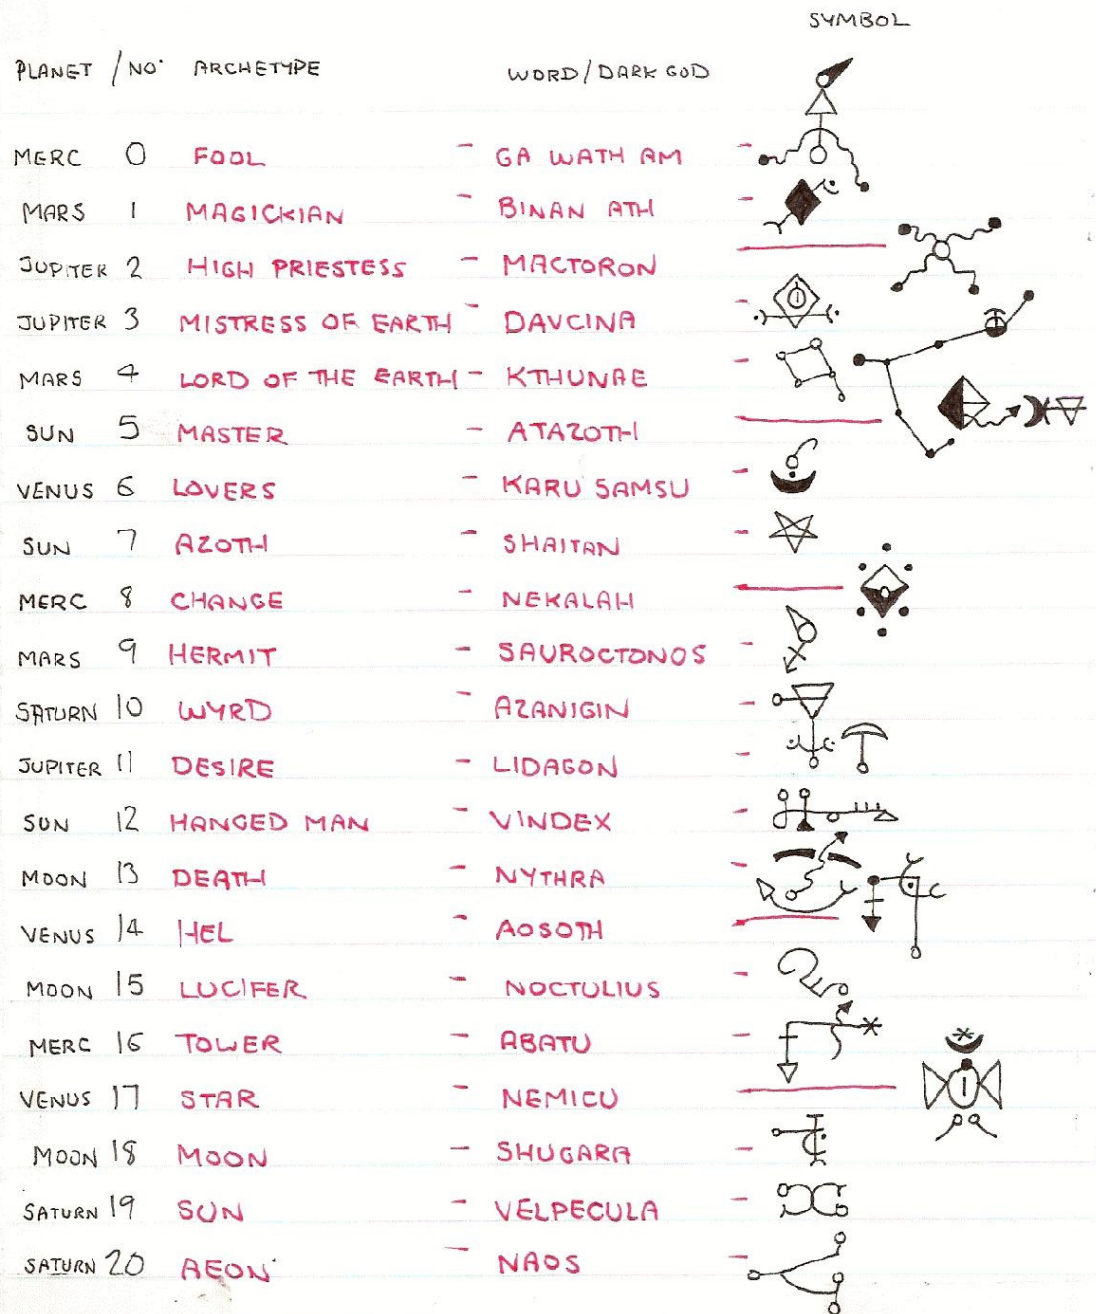 SYMBOL
PLANET / NO. ARCHETYPE WORD / DARK GOD
MERC 0 FOOL - GA WATH AM -
MARS 1 MAGICKIAN - BINAN ATH -
JUPITER 2 HIGH PRIESTESS - MACTORON
JUPITER 3 MISTRESS OF EARTH - DAVCINA -
MARS 4 LORD OF THE EARTH - KTHUNAE -
SUN 5 MASTER - ATAZOTH
VENUS 6 LOVERS - KARU SAMSU -
SUN 7 AZOTH - SHAITAN -
MERC 8 CHANGE - NEKALAH
MARS 9 HERMIT - SAUROCTONOS -
SATURN 10 WYRD - AZANIGIN -
JUPITER 11 DESIRE - LIDAGON -
SUN 12 HANGED MAN - VINDEX -
MOON 13 DEATH - NYTHRA -
VENUS 14 HEL - AOSOTH
MOON 15 LUCIFER - NOCTULIUS -
MERC 16 TOWER - ABATU -
VENUS 17 STAR - NEMICU
MOON 18 MOON - SHUGARA -
SATURN 19 SUN - VELPECULA -
SATURN 20 AEON - NAOS -